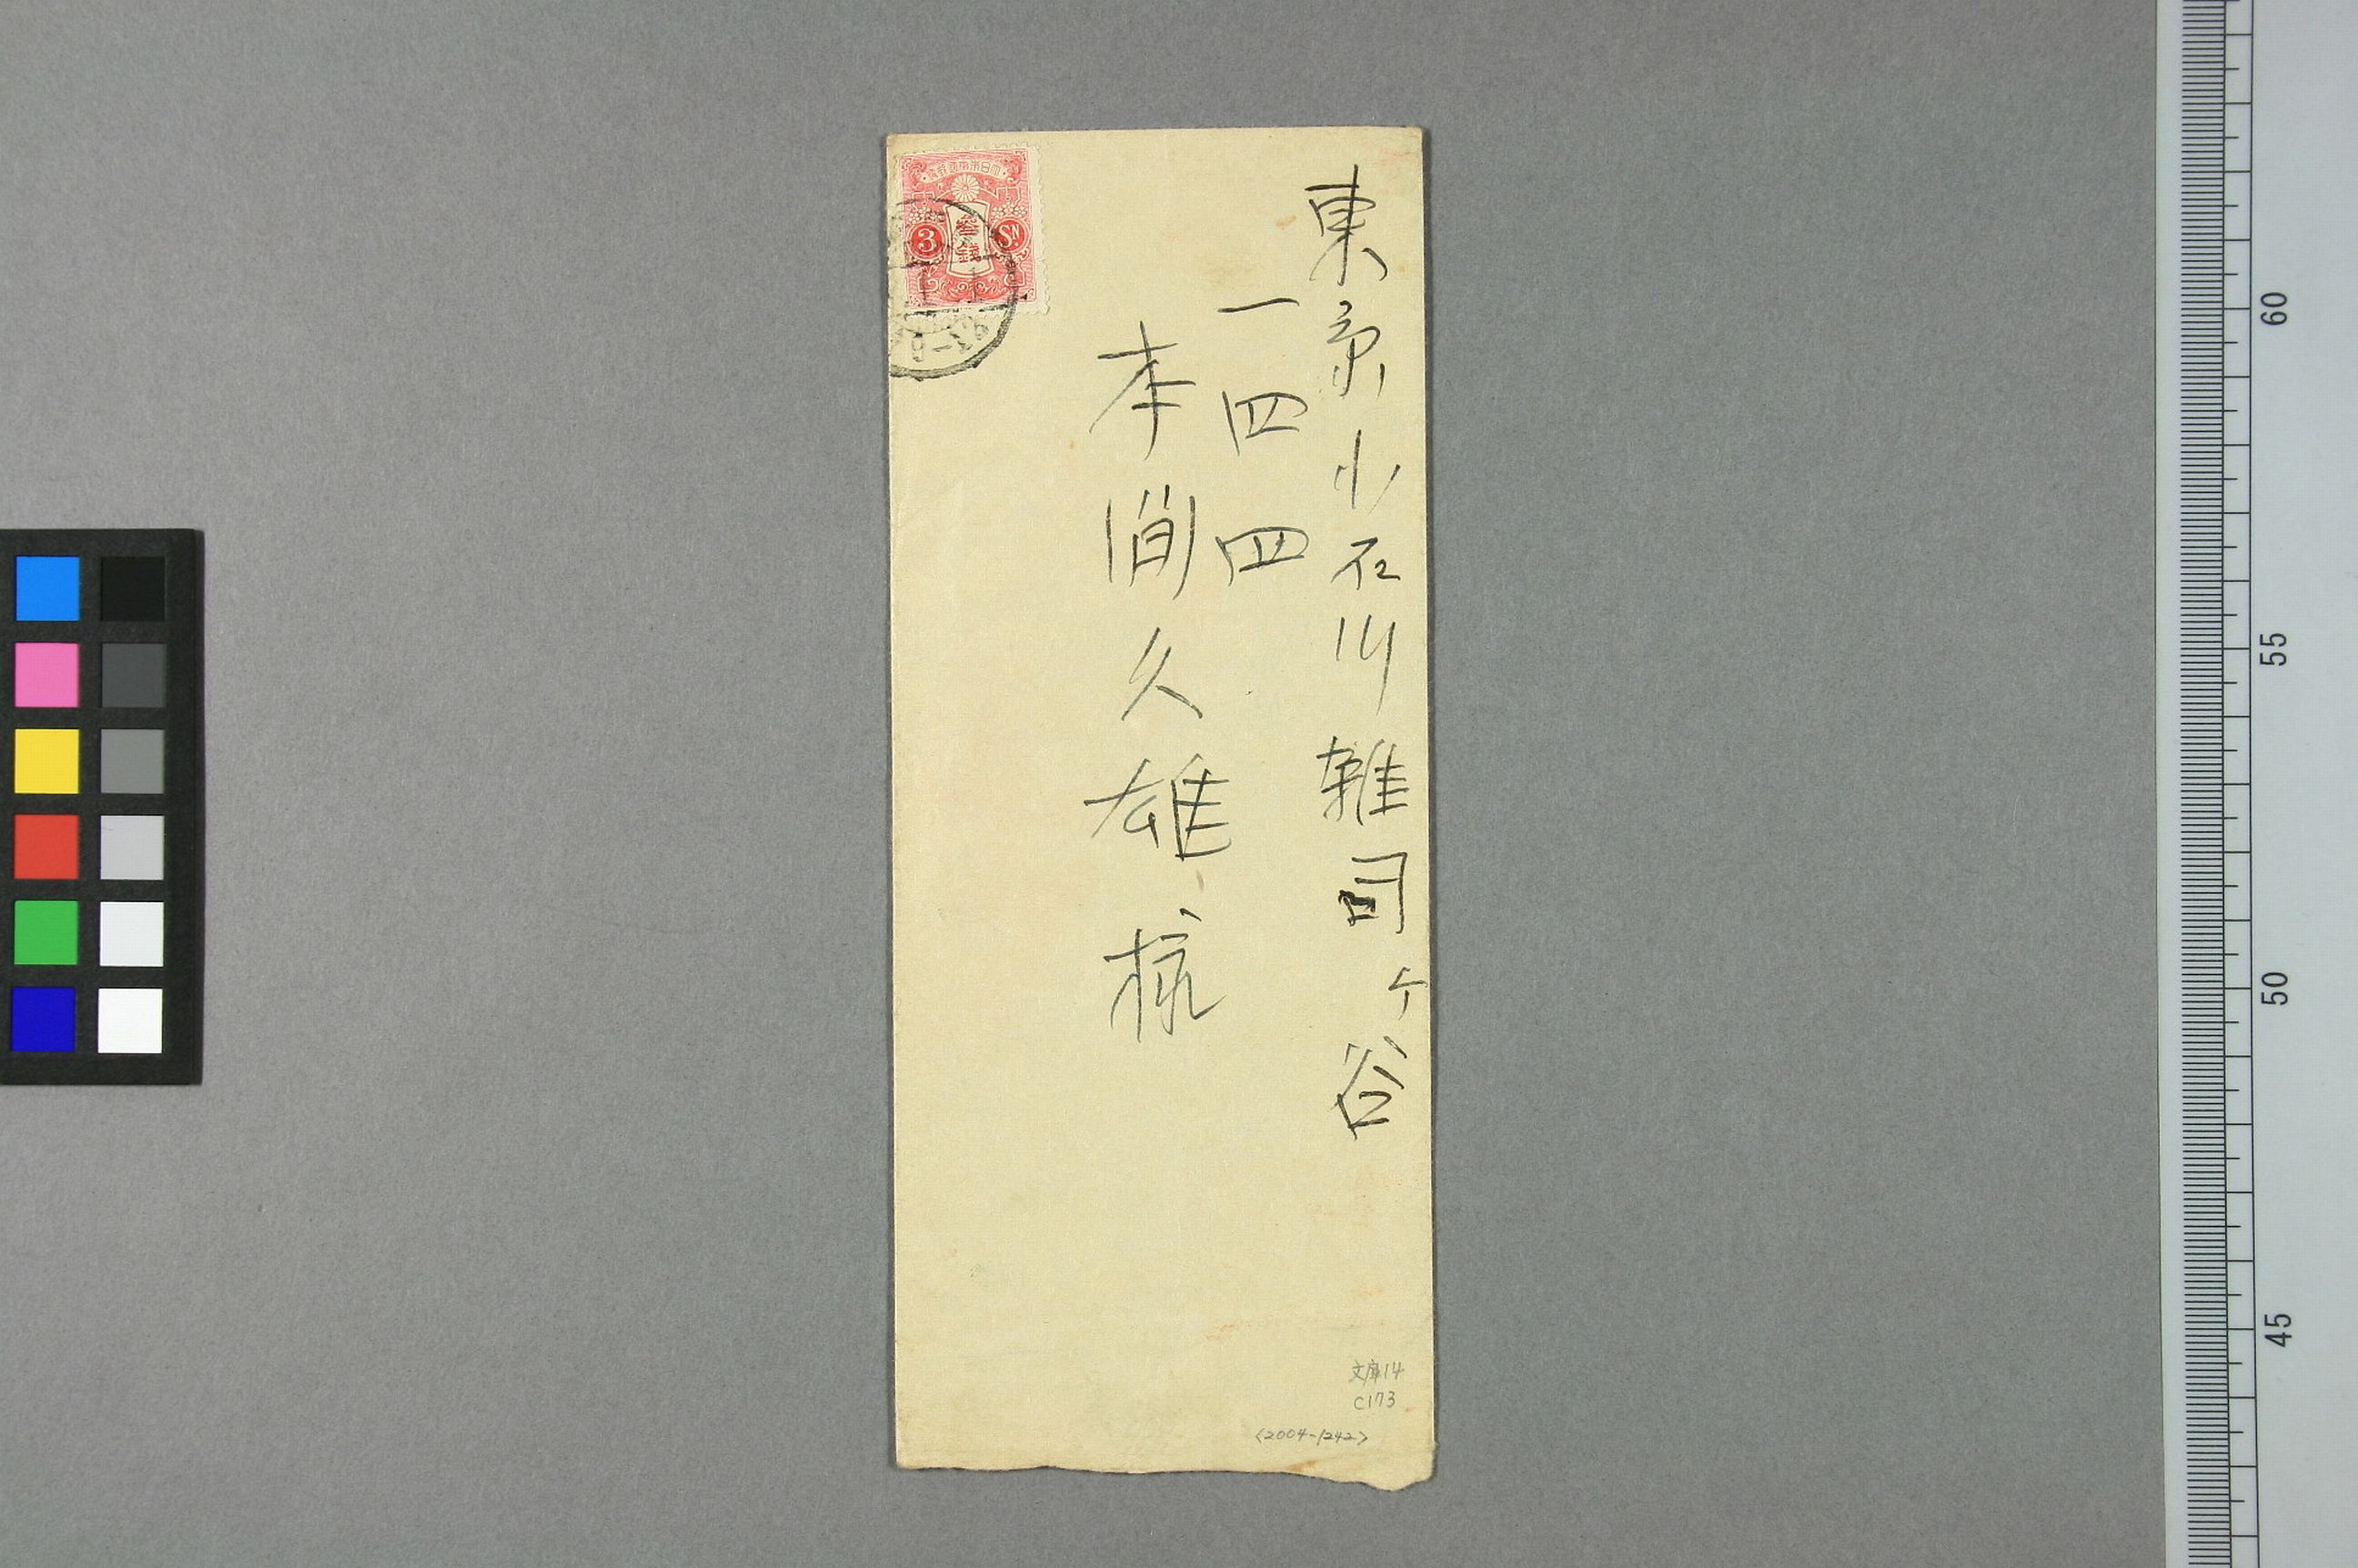 東京小石川雑司ヶ谷
一四四
本間久雄様
大日本帝國郵便
3
参銭
Sn
文庫14
C173
<2004-1242>
60
55
50
45